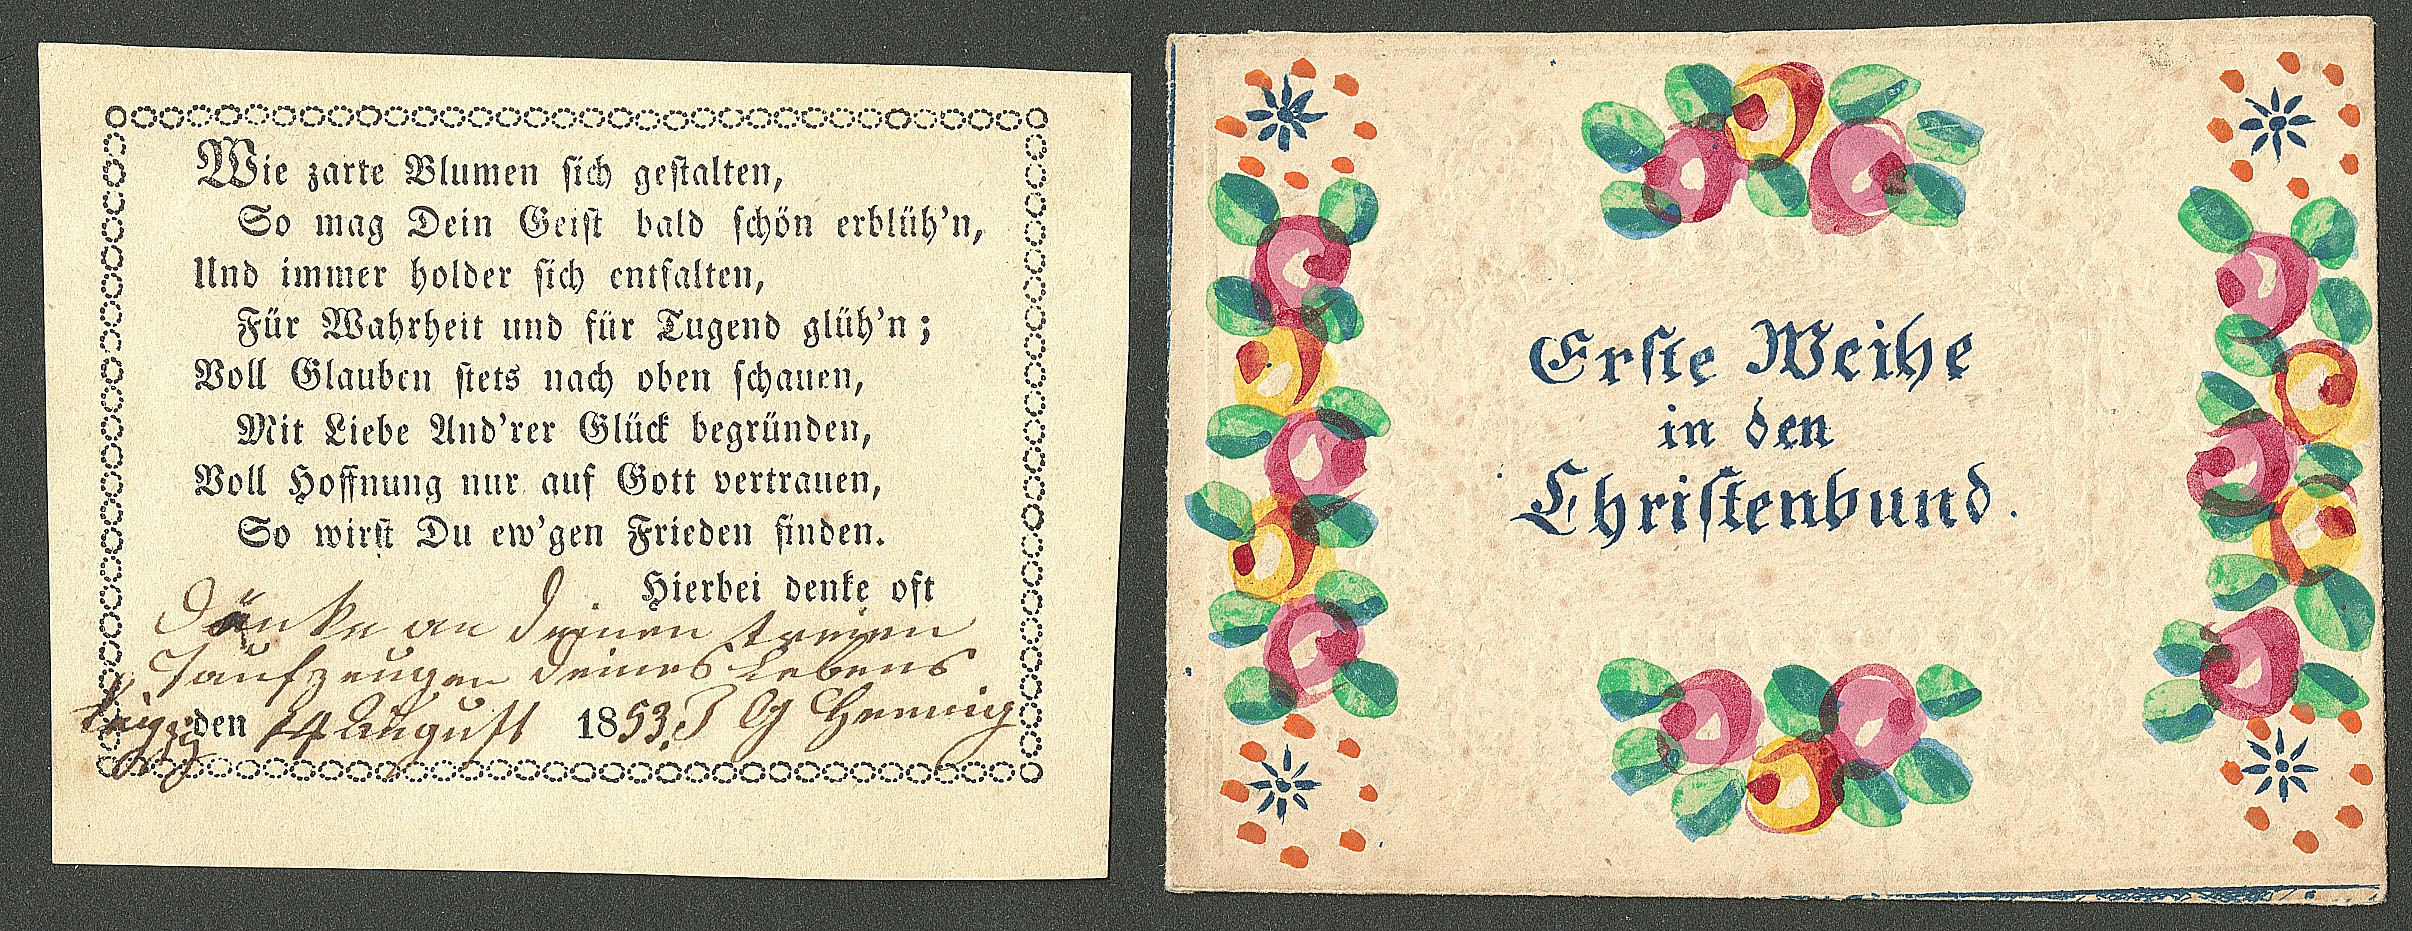 Wie zarte Blumen sich gestalten,
So mag Dein Geist bald schön erblüh'n,
Und immer holder sich entfalten,
Für Wahrheit und für Tugend glüh'n;
Voll Glauben stets nach oben schauen,
Mit Liebe And'rer Glück begründen,
Voll Hoffnung nur auf Gott vertrauen,
So wirst Du ew'gen Frieden finden.
Hierbei denke oft
Dänke an deinen treuen
Taufzeugen deines Lebens
den 24 August 1853. J G Hennig
Erste Weihe
in den
Christenbund.